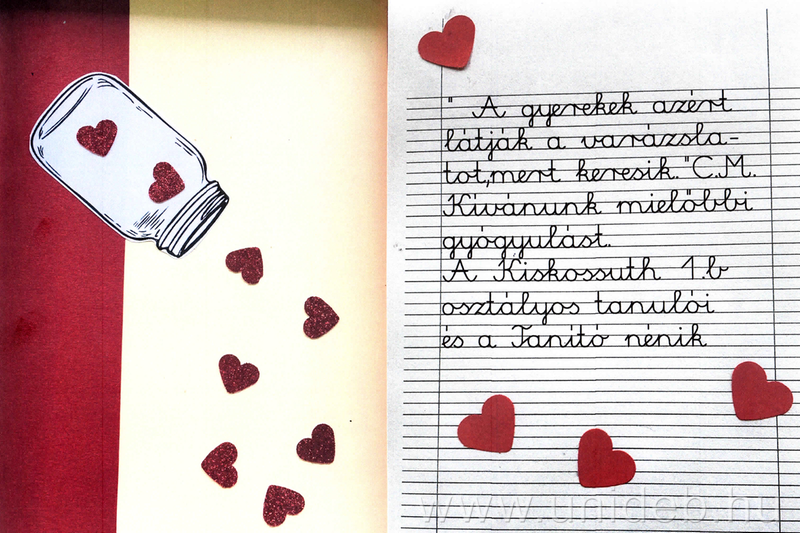 " A gyerekek azért
látják a varázsla-
tot,mert keresik."C.M.
Kívánunk mielőbbi
gyógyulást.
A Kiskossuth 1.b
osztályos tanulói
és a Tanító nénik
www.unideb.hu